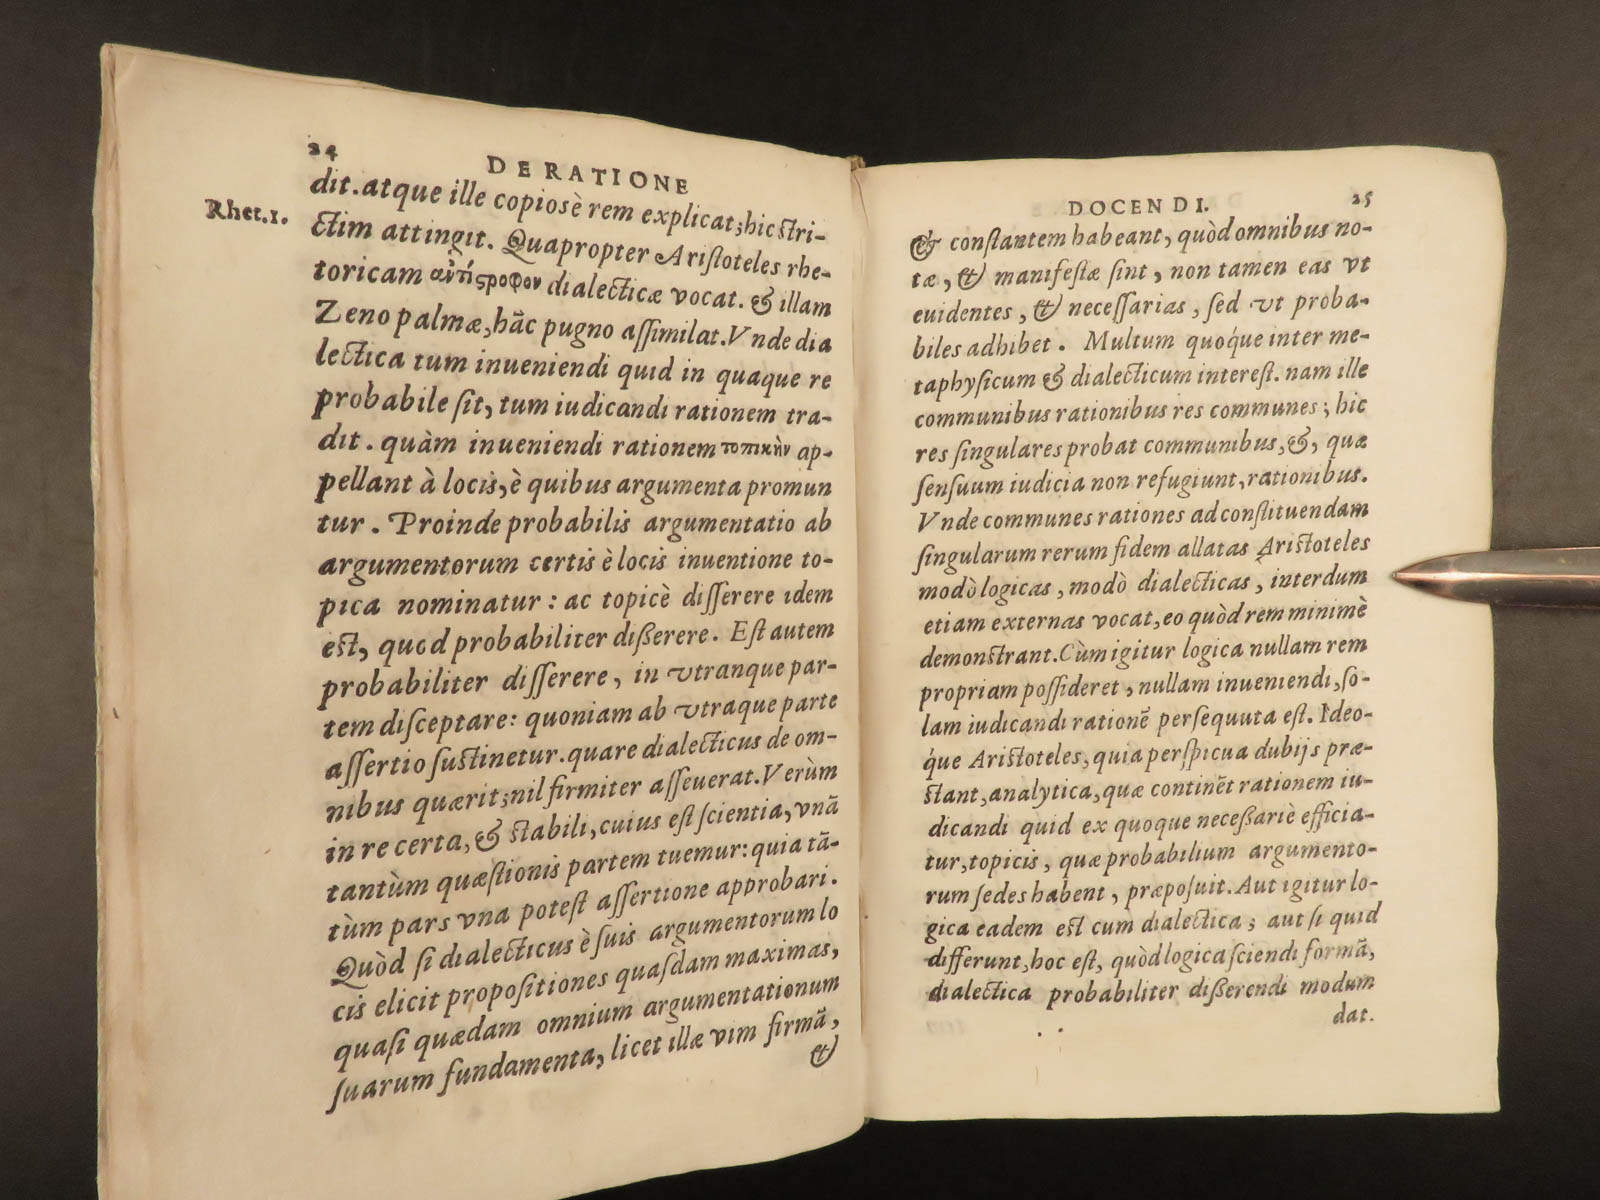 24
DE RATIONE
Rhet.1.
dit. atque ille copiosè rem explicat; hic stri-
ctim attingit. Quapropter Aristoteles rhe-
toricam ἀντίςροφον dialecticæ vocat. & illam
Zeno palmæ, hāc pugno assimilat. Vnde dia
lectica tum inueniendi quid in quaque re
probabile sit, tum iudicandi rationem tra-
dit. quàm inueniendi rationem τοπικὴν ap-
pellant à locis, è quibus argumenta promun
tur. Proinde probabilis argumentatio ab
argumentorum certis è locis inuentione to-
pica nominatur: ac topicè disserere idem
est, quod probabiliter disserere. Est autem
probabiliter disserere, in vtranque par-
tem disceptare: quoniam ab vtraque parte
assertio sustinetur. quare dialecticus de om-
nibus quærit; nil firmiter asseuerat. Verùm
in re certa, & stabili, cuius est scientia, vnā
tantùm quæstionis partem tuemur: quia tā-
tùm pars vna potest assertione approbari.
Quòd si dialecticus è suis argumentorum lo
cis elicit propositiones quasdam maximas,
quasi quædam omnium argumentationum
suarum fundamenta, licet illæ vim firmā,
&
DOCENDI.
25
& constantem habeant, quòd omnibus no-
tæ, & manifestæ sint, non tamen eas vt
euidentes, & necessarias, sed vt proba-
biles adhibet. Multum quóque inter me-
taphysicum & dialecticum interest. nam ille
communibus rationibus res communes; hic
res singulares probat communibus, &, quæ
sensuum iudicia non refugiunt, rationibus.
Vnde communes rationes ad constituendam
singularum rerum fidem allatas Aristoteles
modò logicas, modò dialecticas, interdum
etiam externas vocat, eo quòd rem minimè
demonstrant. Cùm igitur logica nullam rem
propriam possideret, nullam inueniendi, so-
lam iudicandi rationē persequuta est. Ideo-
q́ue Aristoteles, quia perspicua dubijs præ-
stant, analytica, quæ continēt rationem iu-
dicandi quid ex quoque necessariè efficia-
tur, topicis, quæ probabilium argumento-
rum sedes habent, præposuit. Aut igitur lo-
gica eadem est cum dialectica; aut si quid
differunt, hoc est, quòd logica sciendi formā,
dialectica probabiliter disserendi modum
dat.